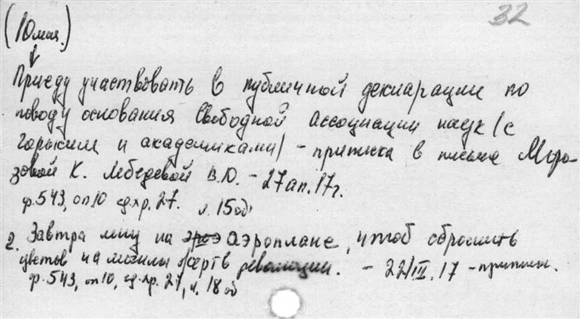 32
(Юлия.)
Приеду участвовать в публичной декларации по
поводу основания Свободной ассоциации наук (с
Горьким и академиками) - приписка в письме Моро-
зовой К. Лебедевой В.Ю. - 27 ап. 17 г.
ф. 543, оп 10 ед. хр. 27. л. 15об
2. Завтра лечу на аэроплане, чтоб сбросить
цветов на могилы жертв революции. - 22/III.17 - приписк.
ф. 543, оп 10, ед. хр. 27, л. 18 об